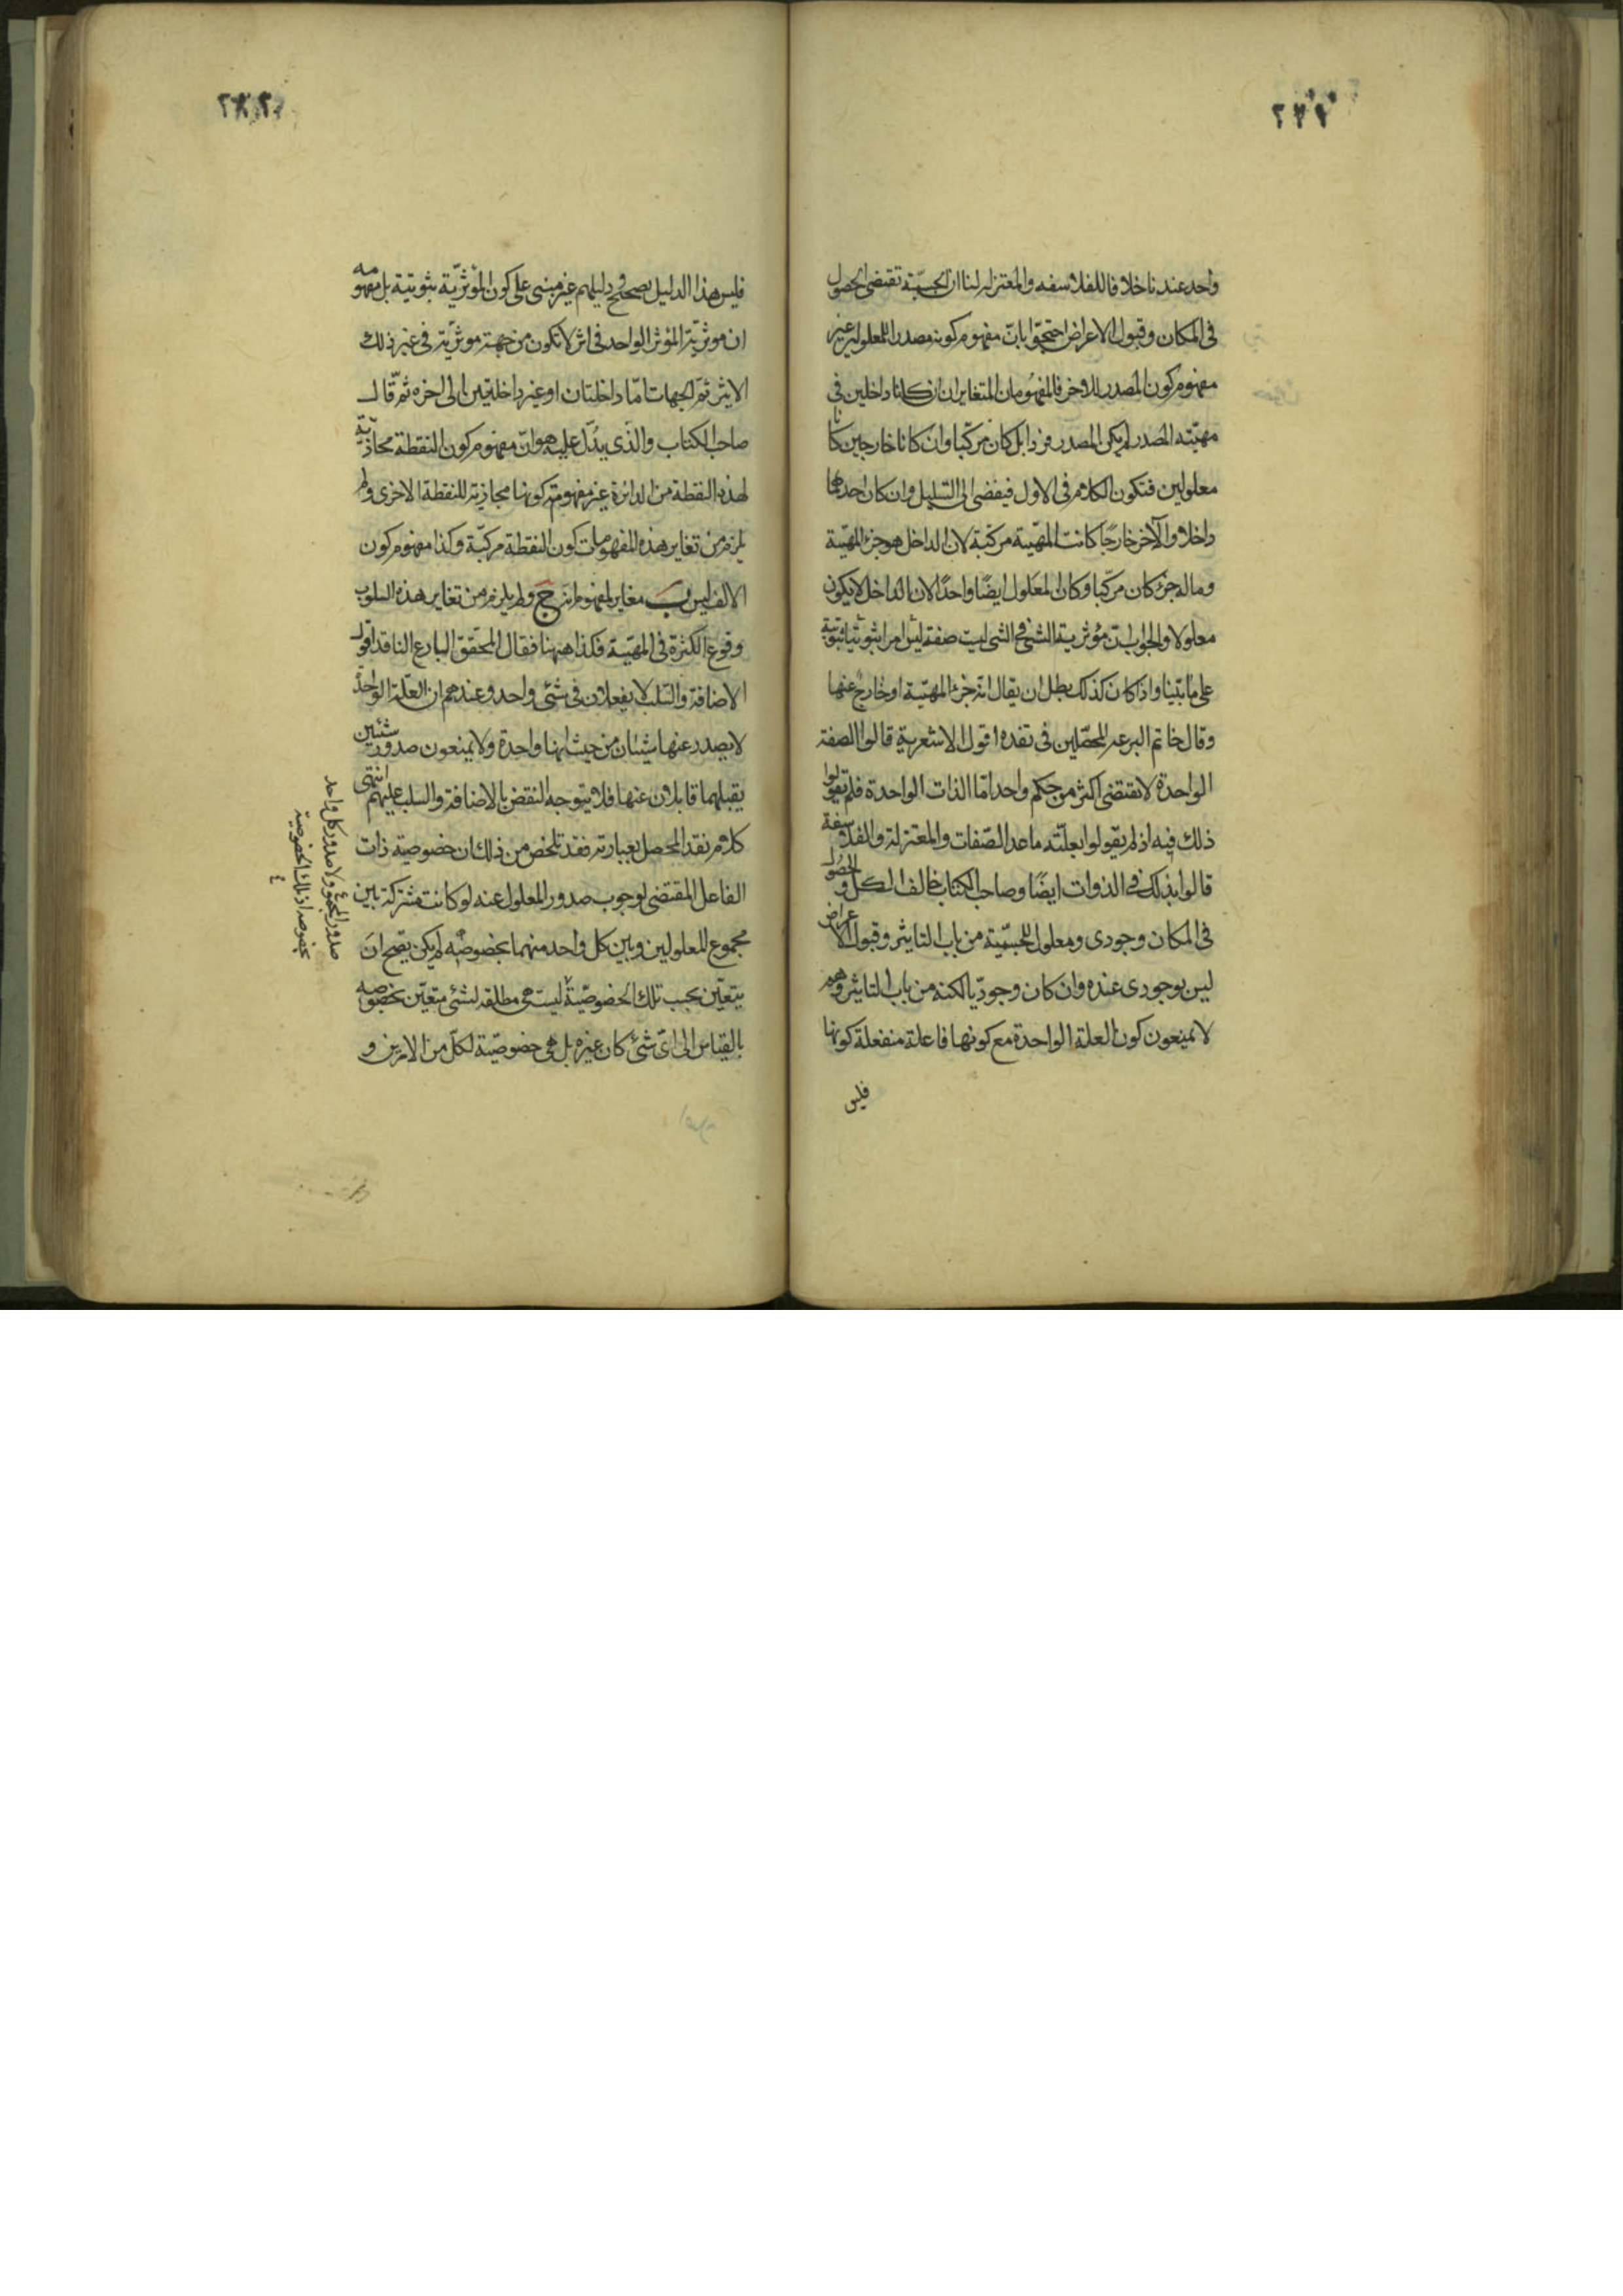 ٢٧٧
واحد عندنا خلافا للفلاسفه والمعتزله لنا ان الجسمية تقتضى الحصول
فى المكان وقبول الاعراض احتجوا بانّ مفهوم كونه مصدرا لمعلول غير
مفهوم كون المصدر للاخر فالمفهومان المتغايران ان كانا داخلين فى
مهيّته المصدر لم يكن المصدر فردا بل كان مركّبا وان كانا خارجين كانا
معلولين فتكون الكلام فى الاول فيفضى الى التسلسل وان كان احدهما
داخلا والآخر خارجًا كانت المهيّة مركبة لان الداخل هو جزء المهيّة
وماله جزء كان مركّبا وكان المعلول ايضًا واحدًا لان الداخل لا يكون
معلولا والجواب انّ مؤثرية الشئ فى الشئ ليست صفة ثبوتية
على ما بيّنا واذا كان كذلك بطل ان يقال انه جزء المهيّة او خارج عنها
وقال خاتم المحصّلين فى نقده اقول الاشعرية قالوا الصفة
الواحدة لا تقتضى اكثر من حكم واحد امّا الذات الواحدة فلم يقولوا
ذلك فيه اذ لم يقولوا بعلّته ما عدا الصّفات والمعتزلة والفلاسفة
قالوا بذلك فى الذوات ايضًا وصاحب الكتاب خالف الكل والحصول
فى المكان وجودى ومعلول للجسميّة من باب التاثير وقبول الاعراض
ليس بوجودى عنده وان كان وجوديا لكنه من باب التاثير وهم
لا يمنعون كون العلة الواحدة مع كونها فاعلة منفعلة كونها
فليس
فليس هذا الدليل بصحيح دليلهم غير مبنى على كون المؤثريّة ثبوتية بل مفهومه
ان موثريّة المؤثر الواحد فى اثر لا تكون من جهة موثريّته فى غير ذلك
الاثر ثم الجهات امّا داخلتان او غير داخلتين الى اخره ثمّ قال
صاحب الكتاب والّذى يدُلّ عليه هو انّ مفهوم كون النقطة محاذية
لهذه النقطة من الدائرة غير مفهوم كونها محاذية للنقطة الاخرى ولم
يلزم من تغاير هذه المفهومات كون النقطة مركبّة وكذا مفهوم كون
الالف ليس ب مغاير لمفهوم انه ليس ج ولم يلزم من تغاير هذه السلوب
وقوع الكثرة فى المهيّة فكذا ههنا فقال المحقق البارع الناقد اقول
الاضافة والسّلب لا يعقلان فى شئ واحد وعندهم ان العلّة الواحدة
لا يصدر عنها شيئان من حيث انها واحدة ولا يمنعون صدور شيئين
يقبلهما قابلان عنها فلا يتوجه النقض بالاضافة والسلب عليهم انتهى
كلام نقد المحصل بعبارته فقد تلخص من ذلك ان خصوصية ذات
الفاعل المقتضى لوجوب صدور المعلول عنه لو كانت مشتركة بين
مجموع المعلولين وبين كل واحد منهما بخصوصه لم يكن يصحّ ان
يتعيّن بحسب تلك الخصوصيّة ليست هى مطلقه لشئ متعيّن بخصوصه
بالقياس الى اىّ شئ كان غيره بل هى خصوصيّة لكلّ من الامرين و
صدور المجموع ولا صدور كل واحد
بخصوصه اذ تلك الخصوصية